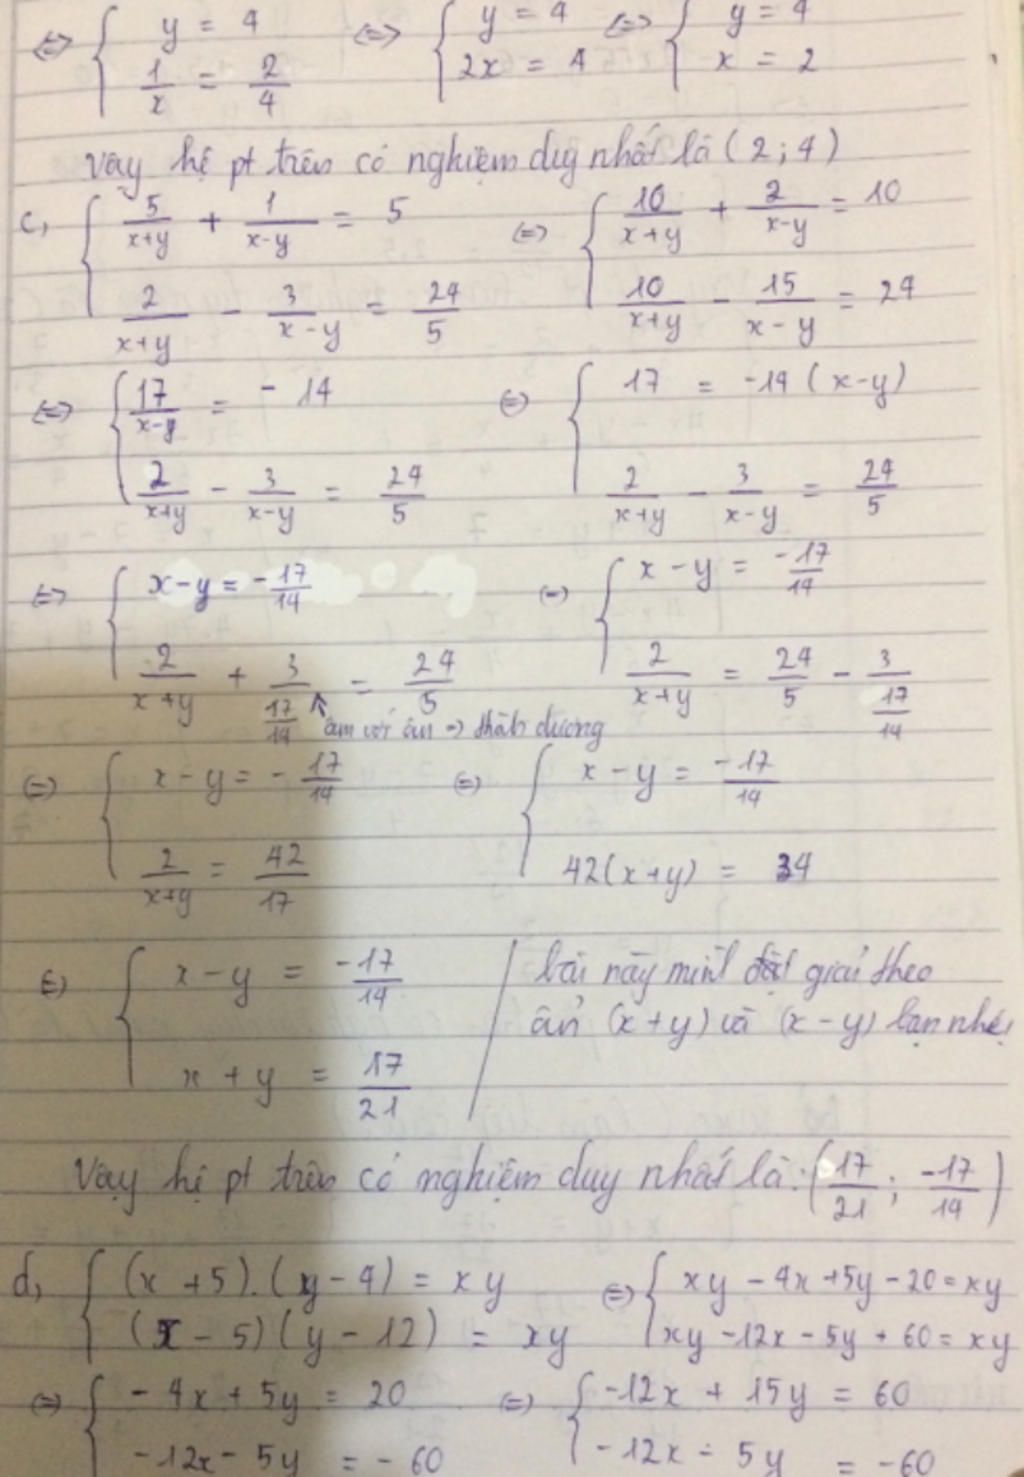 ⇔ { y = 4 ; 1/x = 2/4 ⇔ { y = 4 ; 2x = 4 ⇔ { y = 4 ; x = 2
Vậy hệ pt trên có nghiệm duy nhất là (2 ; 4)
c, { 5/(x+y) + 1/(x-y) = 5 ; 2/(x+y) - 3/(x-y) = 24/5 ⇔ { 10/(x+y) + 2/(x-y) = 10 ; 10/(x+y) - 15/(x-y) = 24
⇔ { 17/(x-y) = -14 ; 2/(x+y) - 3/(x-y) = 24/5 ⇔ { 17 = -14 (x-y) ; 2/(x+y) - 3/(x-y) = 24/5
⇔ { x-y = -17/14 ; 2/(x+y) + 3/(17/14) = 24/5 ⇔ { x-y = -17/14 ; 2/(x+y) = 24/5 - 3/(17/14)
↑ âm với âm => thành dương
⇔ { x-y = -17/14 ; 2/(x+y) = 42/17 ⇔ { x-y = -17/14 ; 42(x+y) = 34
⇔ { x-y = -17/14 ; x+y = 17/21
bài này mình giải theo
ẩn (x+y) và (x-y) bạn nhé!
Vậy hệ pt trên có nghiệm duy nhất là: (17/21 ; -17/14)
d, { (x+5).(y-4) = xy ; (x-5)(y-12) = xy ⇔ { xy - 4x + 5y - 20 = xy ; xy - 12x - 5y + 60 = xy
⇔ { -4x + 5y = 20 ; -12x - 5y = -60 ⇔ { -12x + 15y = 60 ; -12x - 5y = -60